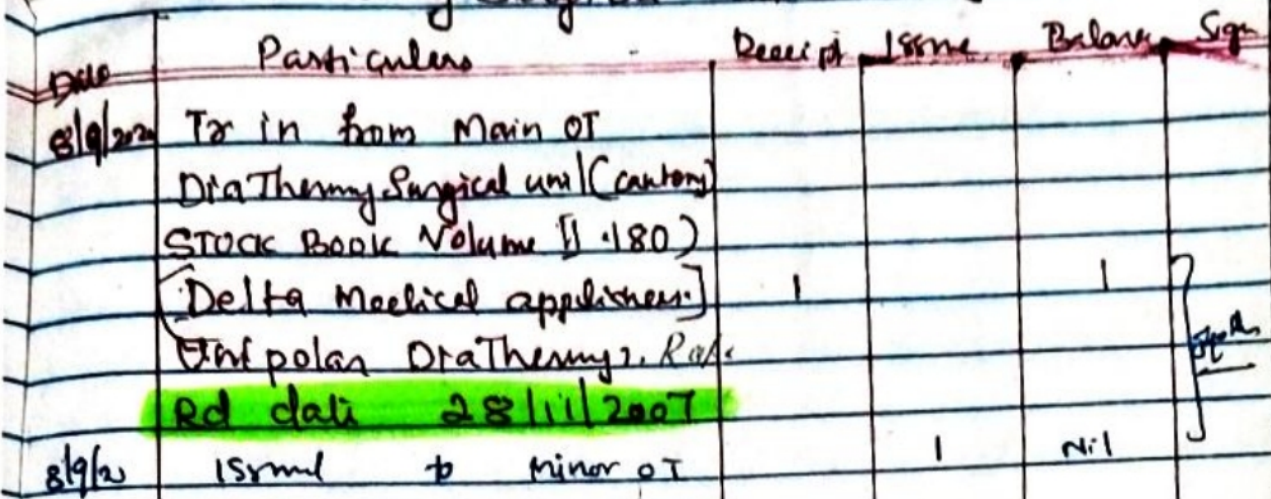 Date Particulars Receipt Issue Balance Sign
8/9/202 Tr in from Main OT
DiaThermy Surgical unit (cantony)
STOCK BOOK Volume II .180)
[Delta Medical appliances.] 1 1
Unipolar DiaThermy
Rd date 28/11/2007
8/9/20 Issued to Minor OT 1 Nil